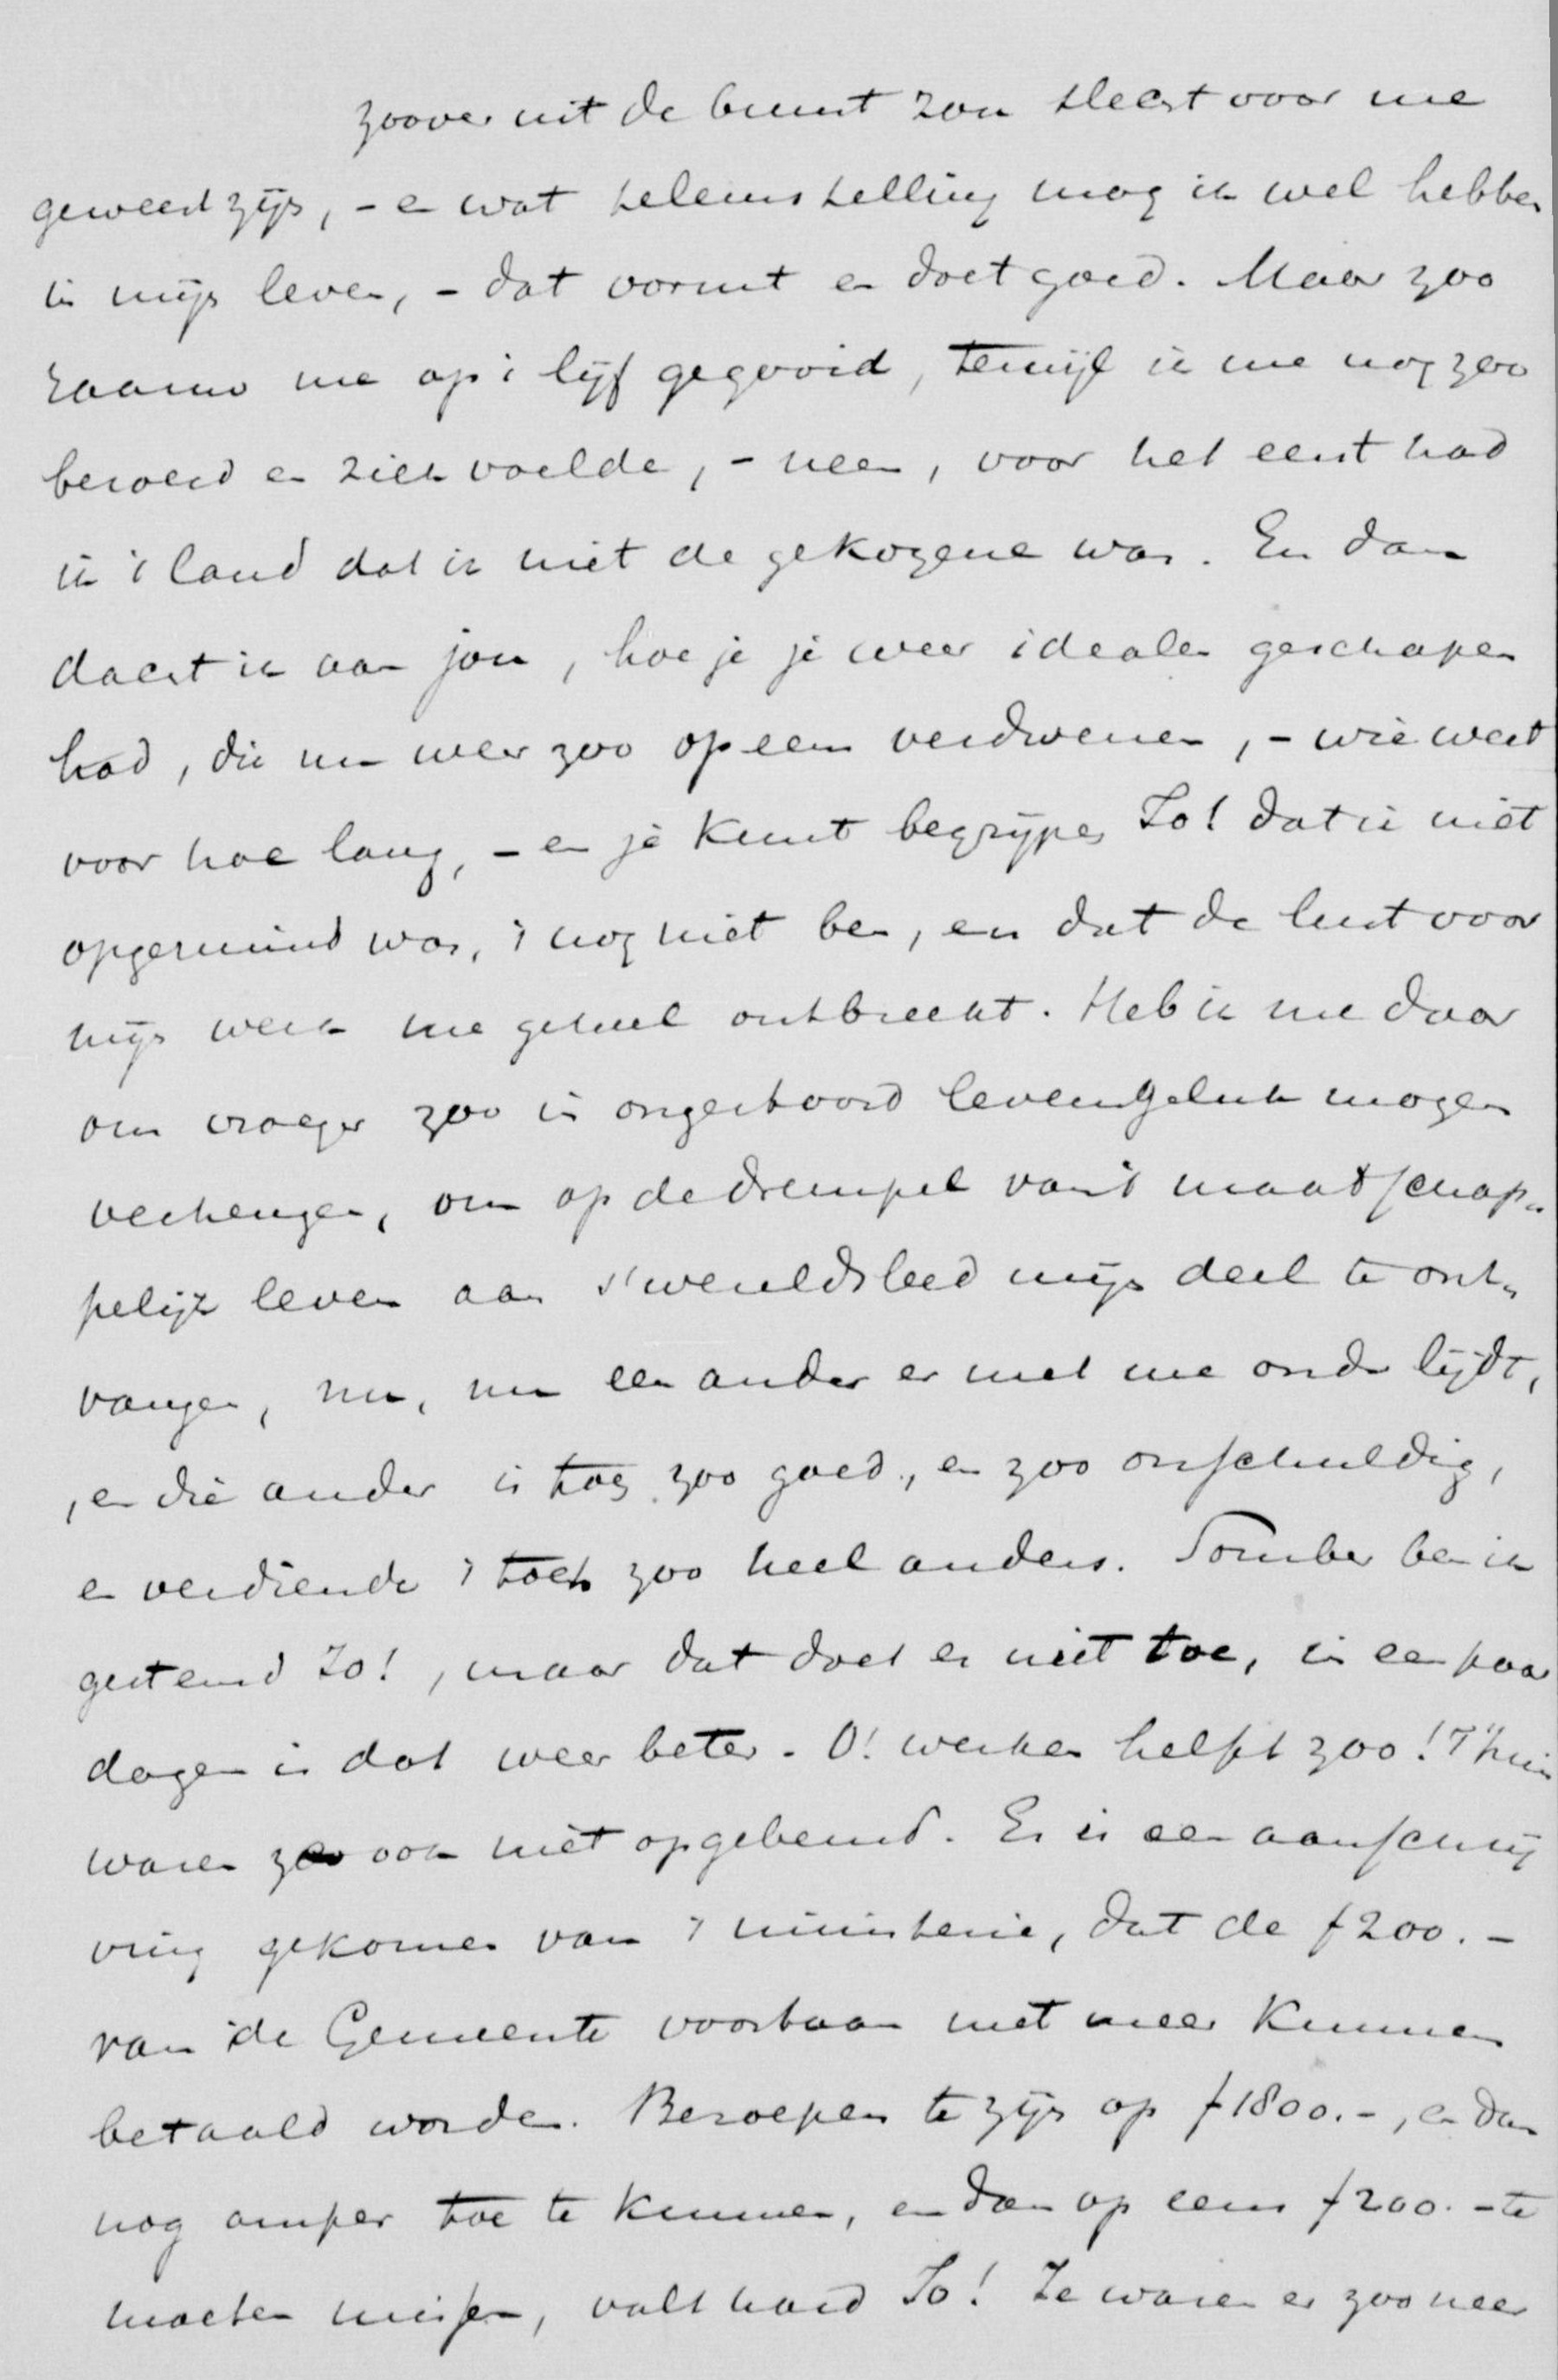 zoover uit de buurt zou slecht voor me
geweest zijn, - en wat teleurstelling mag ik wel hebben
in mijn leven, - dat vormt en doet goed. Maar zoo
raauw me op 't lijf gegooid, terwijl ik me nog zoo
beroerd en ziek voelde, - neen, voor het eerst had
ik 't land dat ik niet de gekozene was. En dan
dacht ik aan jou, hoe je je weer idealen geschapen
had, die nu weer zoo opeens verdwenen, - wie weet
voor hoe lang, - en je kunt begrijpen Jo! dat ik niet
opgeruimd was, 't nog niet ben, en dat de lust voor
mijn werk me geheel ontbreekt. Heb ik me daar
om vroeger zoo in ongestoord levensgeluk mogen
verheugen, om op de drempel van 't maatschap-
pelijk leven aan 's werelds leed mijn deel te ont-
vangen, nu, nu een ander er met me onder lijdt,
, en die ander is tog zoo goed, en zoo onschuldig,
en verdiende 't toch zoo heel anders. Somber ben ik
gestemd Jo!, maar dat doet er niet toe, in een paar
dagen is dat weer beter. O! werken helpt zoo! Thuis
waren ze ook niet opgebeurd. Er is een aanschrij
ving gekomen van 't ministerie, dat de f200.-
van de Gemeente voortaan niet meer kunnen
betaald worden. Beroepen te zijn op f1800.-, en dan
nog amper toe te kunnen, en dan op eens f200.- te
moeten missen, valt hard Jo! Ze waren er zoo neer